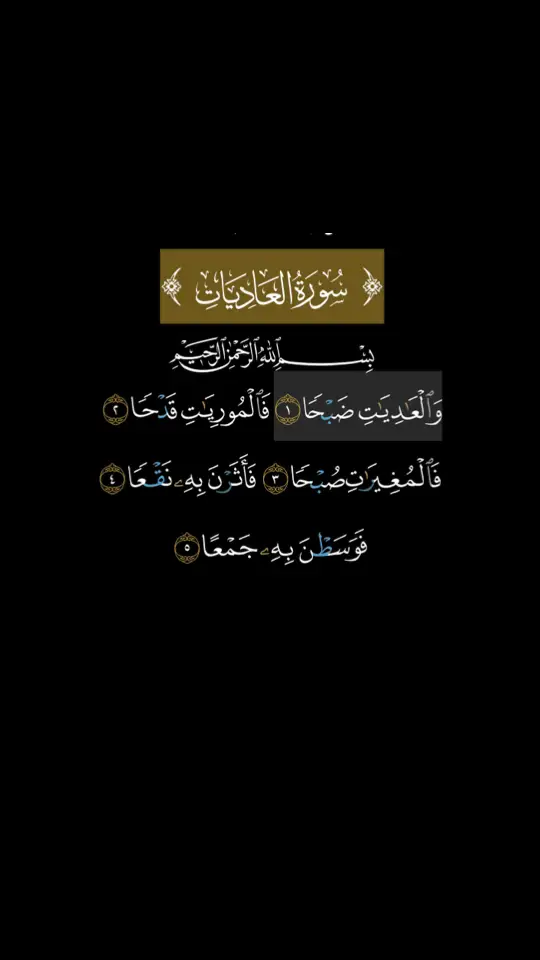 سُورَةُ العَادِيَاتِ
بِسْمِ ٱللَّهِ ٱلرَّحْمَٰنِ ٱلرَّحِيمِ
وَٱلْعَٰدِيَٰتِ ضَبْحًا ١ فَٱلْمُورِيَٰتِ قَدْحًا ٢
فَٱلْمُغِيرَٰتِ صُبْحًا ٣ فَأَثَرْنَ بِهِۦ نَقْعًا ٤
فَوَسَطْنَ بِهِۦ جَمْعًا ٥